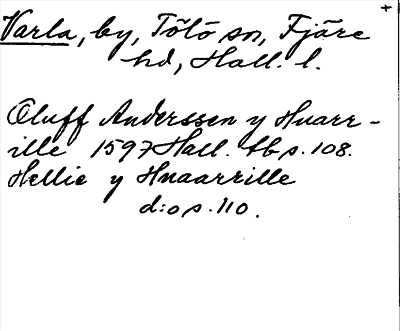 +
Varla, by, Tölö sn, Fjäre
hd, Hall. l.
Oluff Anderssen y Huarr-
ille 1597 Hall. tb s. 108.
Hellie y Hnaarrille
d:o s. 110.